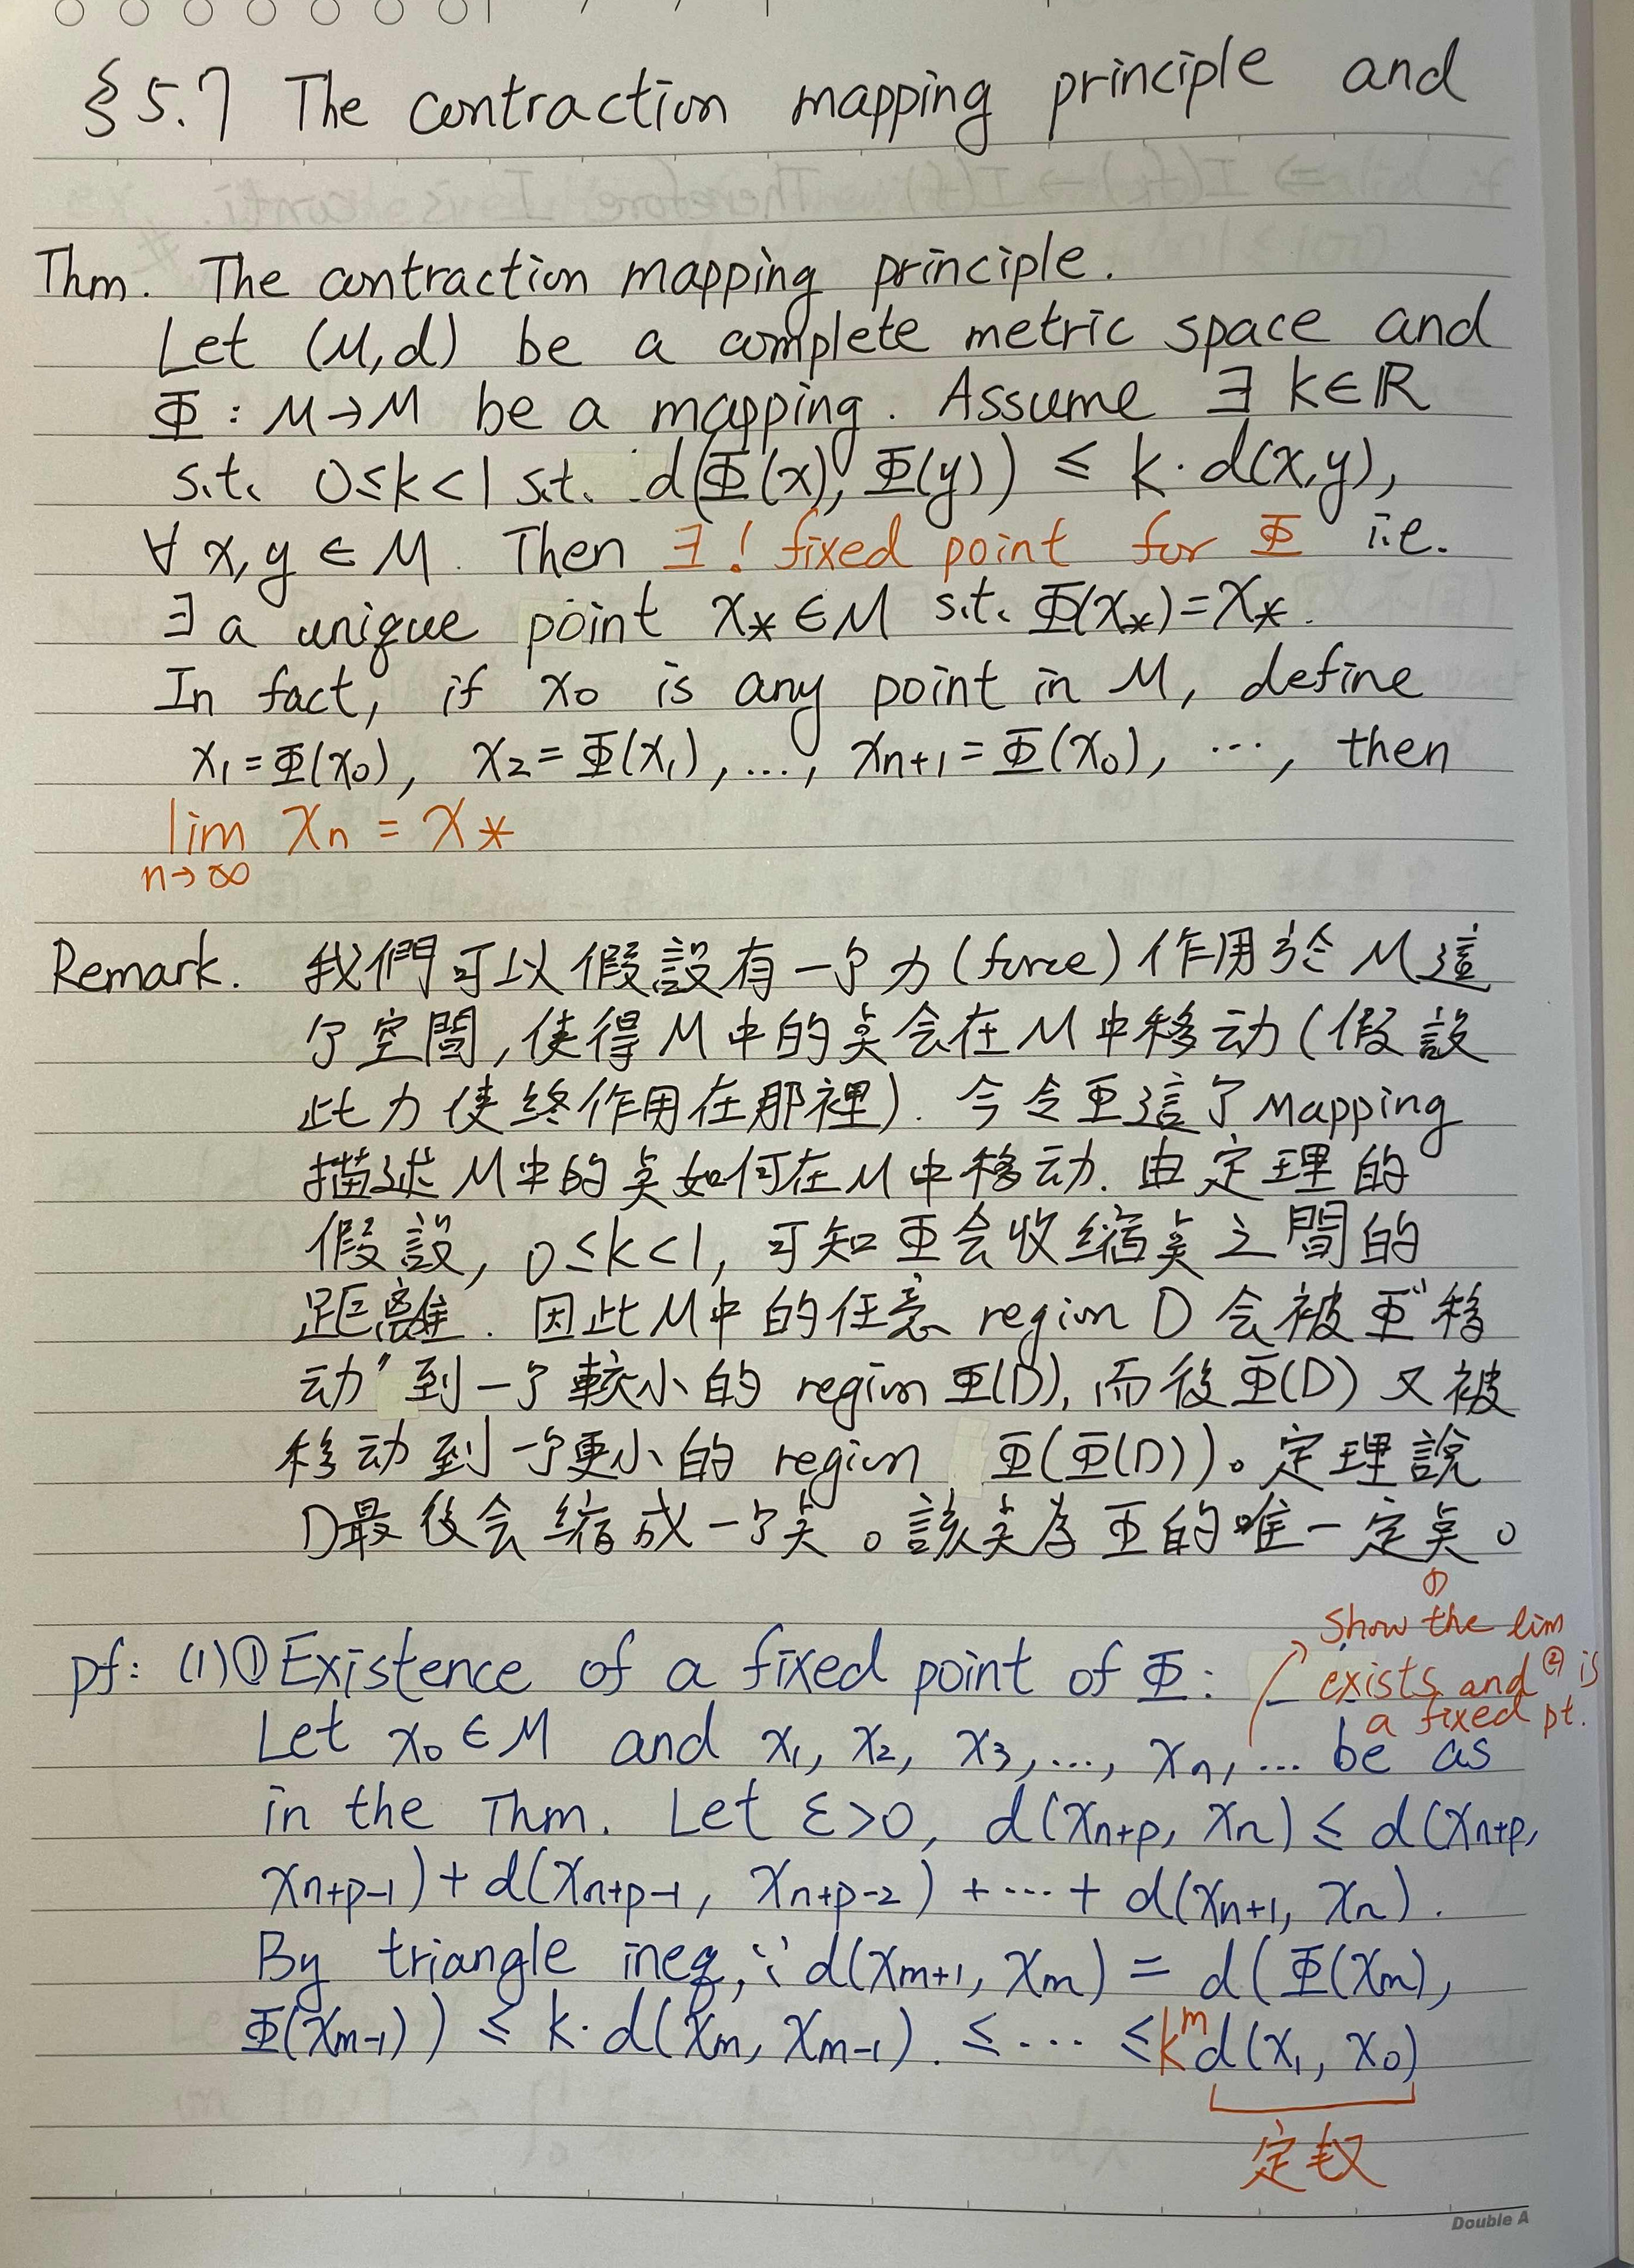 §5.7 The contraction mapping principle and
Thm. The contraction mapping principle.
Let (M,d) be a complete metric space and
Φ : M→M be a mapping. Assume ∃ k∈ℝ
s.t. 0≤k<1 s.t. d(Φ(x), Φ(y)) ≤ k·d(x,y),
∀ x,y ∈ M. Then ∃! fixed point for Φ i.e.
∃ a unique point x* ∈ M s.t. Φ(x*)=x*.
In fact, if x₀ is any point in M, define
x₁=Φ(x₀), x₂=Φ(x₁), ..., xₙ₊₁=Φ(x₀), ..., then
lim xₙ = x*
n→∞
Remark. 我們可以假設有一个力(force)作用於M這
个空間,使得M中的奌会在M中移动(假設
此力使終作用在那裡). 今令Φ這个Mapping
描述M中的奌如何在M中移动. 由定理的
假設, 0≤k<1, 可知Φ会收缩奌之間的
距離. 因此M中的任意 region D 会被Φ"移
动"到一个較小的 region Φ(D), 而後Φ(D) 又被
移动到一个更小的 region Φ(Φ(D))。定理說
D最後会缩成一个奌。該奌為Φ的唯一定奌。
pf: (1)① Existence of a fixed point of Φ:
① show the lim
exists and ② is
a fixed pt.
Let x₀∈M and x₁, x₂, x₃, ..., xₙ, ... be as
in the Thm. Let ε>0, d(xₙ₊ₚ, xₙ) ≤ d(xₙ₊ₚ,
xₙ₊ₚ₋₁) + d(xₙ₊ₚ₋₁, xₙ₊ₚ₋₂) + ··· + d(xₙ₊₁, xₙ).
By triangle ineq, ∵ d(xₘ₊₁, xₘ) = d(Φ(xₘ),
Φ(xₘ₋₁)) ≤ k·d(xₘ, xₘ₋₁). ≤ ··· ≤ kᵐd(x₁, x₀)
定
Double A